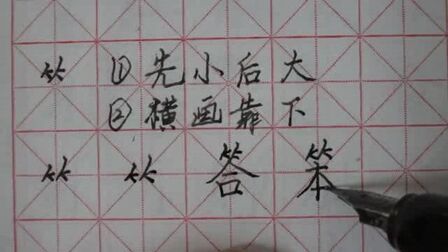 ⺮ ①先小后大
②横画靠下
⺮ ⺮ 答 笨